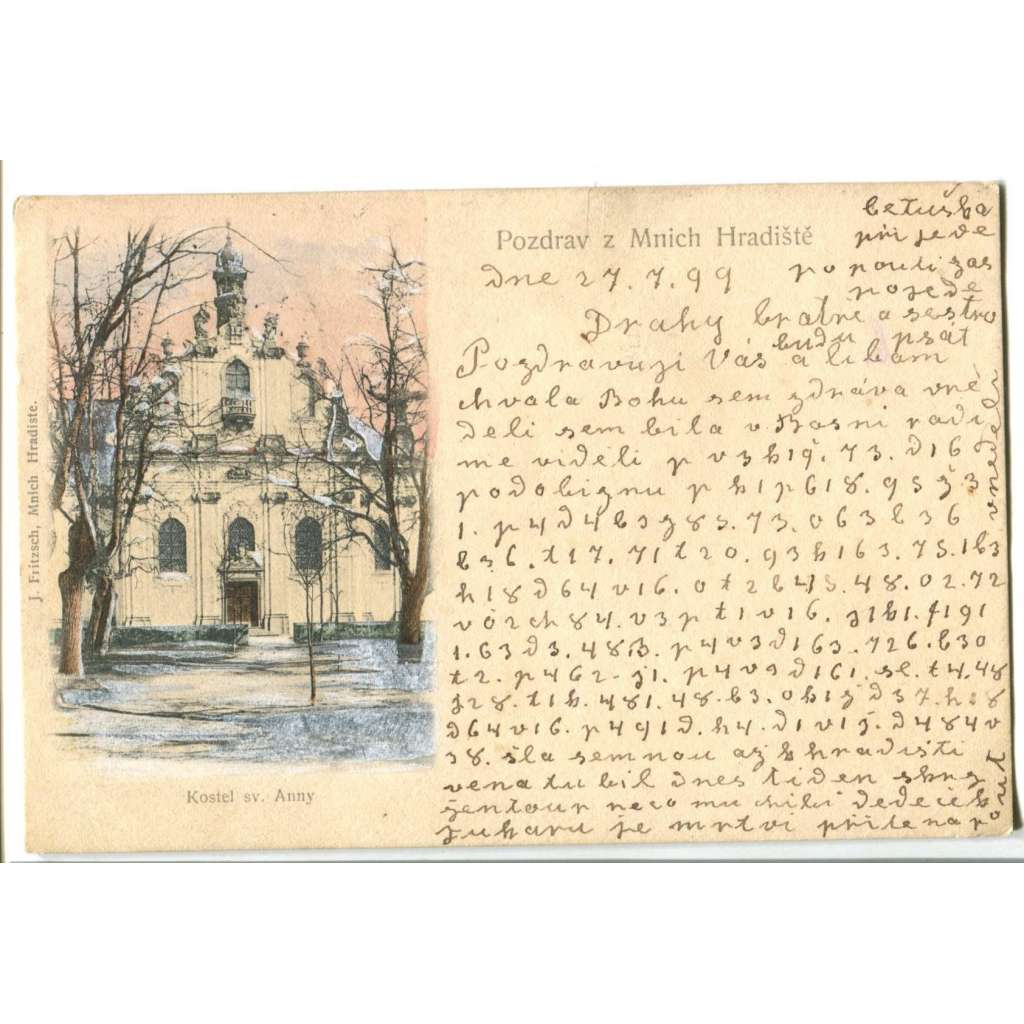 Pozdrav z Mnich Hradiště
betuška
při jede
po pouti zas
pojede
budu psát
dne 27.7.99
Drahy bratře a sestro
Pozdravuji Vás a líbám
chvala Bohu sem zdráva vne
deli sem bila v Bosni radi
me videli p v 3 h 1 9. 7 3. d 1 6
podobiznu p h 1 p 6 1 8. 9 5 ž 3
1. p 4 d 4 b 3 z 8 5. 7 3. 0 6 3 b 3 6
b 5 6. t 1 7. 7 1 t 2 0. 9 3 h 1 6 3. 7 5. 1 b 3
h 1 8 d 6 4 v 1 6. 0 t 2 b 4 5. 4 8. 0 2. 7 2
v ó 2 c h 8 4. v 3 p t 1 v 1 6. j 1 h 1. f 1 9 1
1. 6 3 d 3. 4 8 B. p 4 v 3 d 1 6 3. 7 2 6. b 3 0
t 2. p 4 6 2 - j 1. p 4 v 9 d 1 6 1. se. t 4. 4 8
j 2 8. t 1 h. 4 8 1. 4 8. b 3. 0 h 1 ž d 3 7. h 1 8
d 6 4 v 1 6. p 4 9 1 d. h 4. d 1 v 1 j. d 4 8 4 v
3 8. šla semnou až k hradišti
vena tu bil dnes tiden
žentour neco mu chibi dedeček
Juharu je mrtvi přite na po
ut
vnedeli
Kostel sv. Anny
J. Fritzsch, Mnich Hradiste.